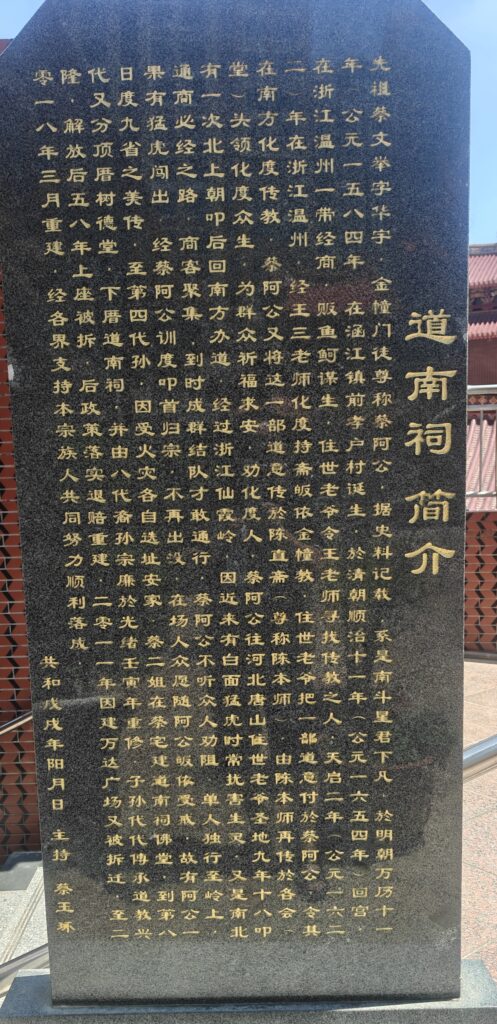 道南祠 简介
先祖蔡文举字华宇，金幢门徒尊称蔡阿公，据史料记载，系是南斗星君下凡，於明朝万历十一
年（公元一五八四年）在涵江镇前孝户村诞生，於清朝顺治十一年（公元一六五四年）回宫，
在浙江温州一带经商，贩鱼鲥谋生，住世老爷令王老师寻找传教之人，天启二年（公元一六二
二）年在浙江温州，经王三老师化度持斋皈依金幢教，住世老爷把一部道意付於蔡阿公，令其
在南方化度传教，蔡阿公又将这一部道意传於陈直斋（尊称陈本师），由陈本师再传於各会（
堂）头领化度众生，为群众祈福求安，劝化度人，蔡阿公往河北唐山住世老爷圣地九年十八叩
有一次北上朝叩后回南方办道，经过浙江仙霞岭，因近来有白面猛虎时常扰害生灵，又是南北
通商必经之路，商客聚集，到时成群结队才敢通行，蔡阿公不听众人劝阻，单人独行至岭上，
果有猛虎闯出，经蔡阿公训度叩首归宗，不再出没，在场人众愿随阿公皈依受戒，故有阿公一
日度九省之美传，至第四代孙，因受火灾各自选址安家，蔡二姐在蔡宅建道南祠佛堂，到第八
代又分顶厝树德堂，下厝道南祠，并由八代裔孙宗廉於光绪壬寅年重修，子孙代代传承道教兴
隆，解放后五八年上座被拆，后政策落实退赔重建，二零一一年因建万达广场又被拆迁，至二
零一八年三月重建，经各界支持本宗族人共同努力顺利落成，
共和戊戌年阳月日 主持 蔡玉琢